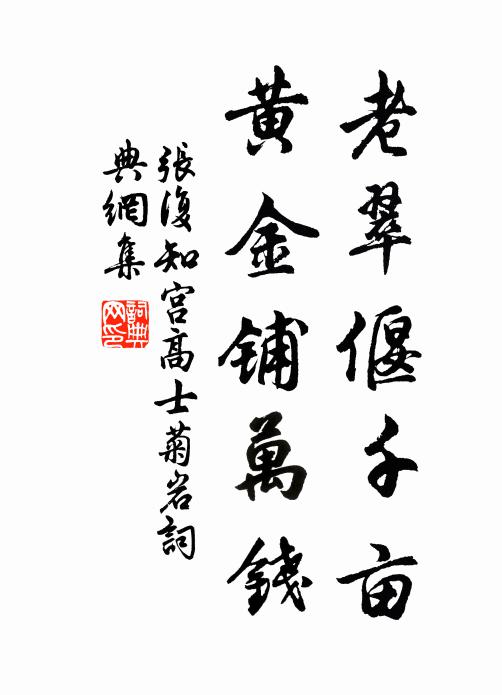 老翠偃千亩
黄金铺萬錢
張復知宫高士菊岩詞
典網集
詞典
网印